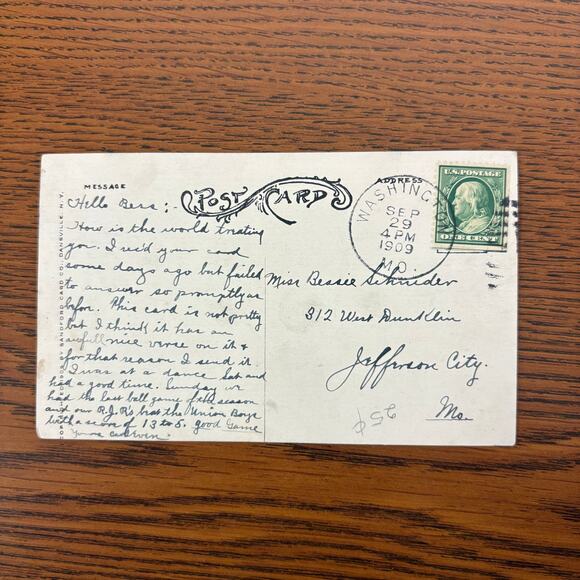 MESSAGE
POST CARD
ADDRESS
Hello Bess:
How is the world treating
you. I rec'd your card
some days ago but failed
to answer so promptly as
befor. This card is not pretty
but I think it has an
awfull nice verse on it &
for that reason I send it.
I was at a dance Sat and
had a good time. Sunday we
had the last ball game of the season
and our R.J.R's beat the Union Boys
with a score of 13 to 5. good Game
Yours
WASHINGTON
SEP
29
4 PM
1909
MO.
U.S. POSTAGE
ONE CENT
Miss Bessie Schnider
312 West Dunklin
Jefferson City.
Mo.
25¢
SANDFORD CARD CO. DANSVILLE, N.Y.